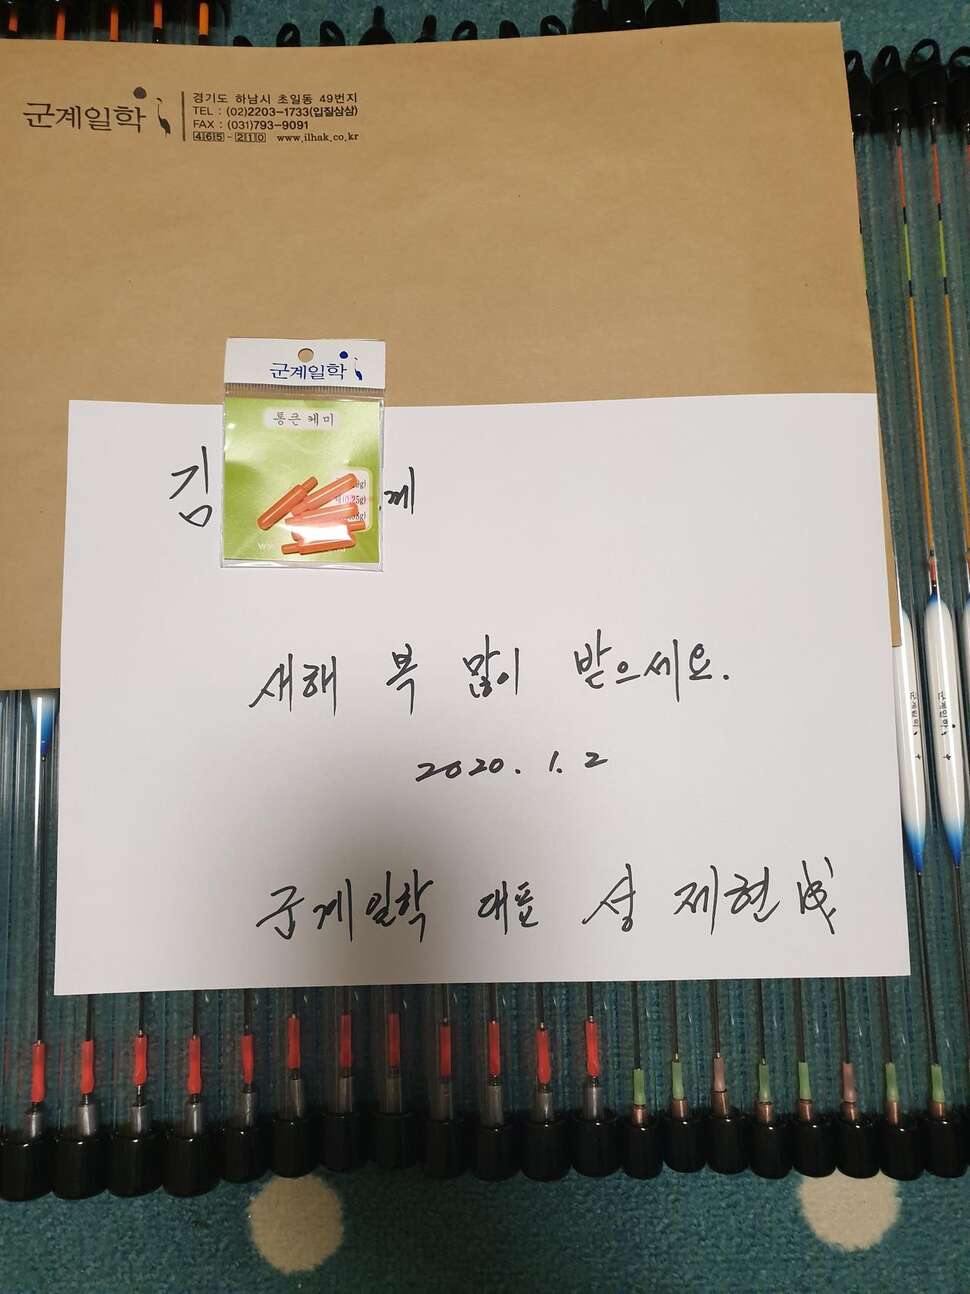 군계일학
경기도 하남시 초일동 49번지
TEL : (02)2203-1733(입질삼삼)
FAX : (031)793-9091
465-210 www.ilhak.co.kr
군계일학
통큰케미
김 께
새해 복 많이 받으세요.
2020. 1. 2
군계일학 대표 성제현
군계일학
군계일학